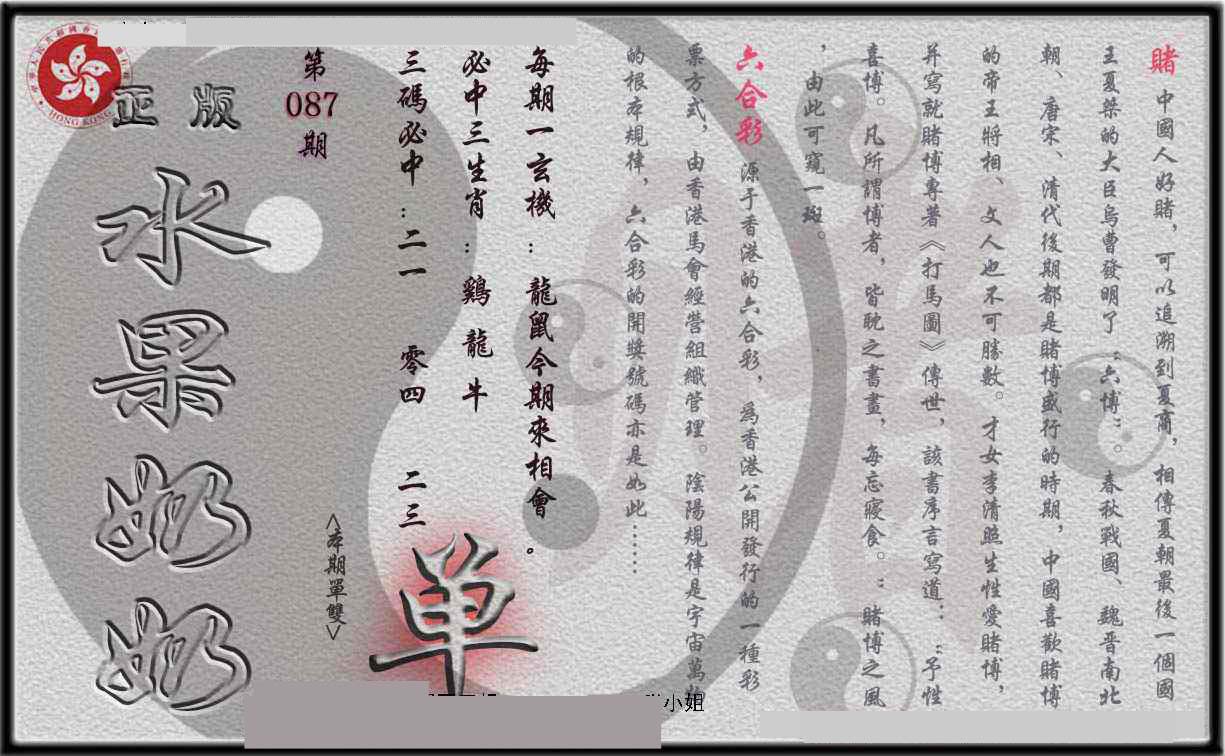 賭 中國人好賭，可以追溯到夏商，相傳夏朝最後一個國
王夏桀的大臣烏曹發明了“六博”。春秋戰國、魏晋南北
朝、唐宋、清代後期都是賭博盛行的時期，中國喜歡賭博
的帝王將相、文人也不可勝數。才女李清照生性愛賭博，
并寫就賭博專著《打馬圖》傳世，該書序言寫道：“予性
喜博。凡所謂博者，皆耽之書畫，每忘寢食。”賭博之風
，由此可窺一斑。
六合彩 源于香港的六合彩，為香港公開發行的一種彩
票方式，由香港馬會經營組織管理。陰陽規律是宇宙萬
的根本規律，六合彩的開獎號碼亦是如此……
每期一玄機：龍鼠今期來相會。
必中三生肖：鷄 龍 牛
三碼必中：二一 零四 二三
第
087
期
<本期單雙>
单
正版
水果奶奶
HONG KONG
小姐